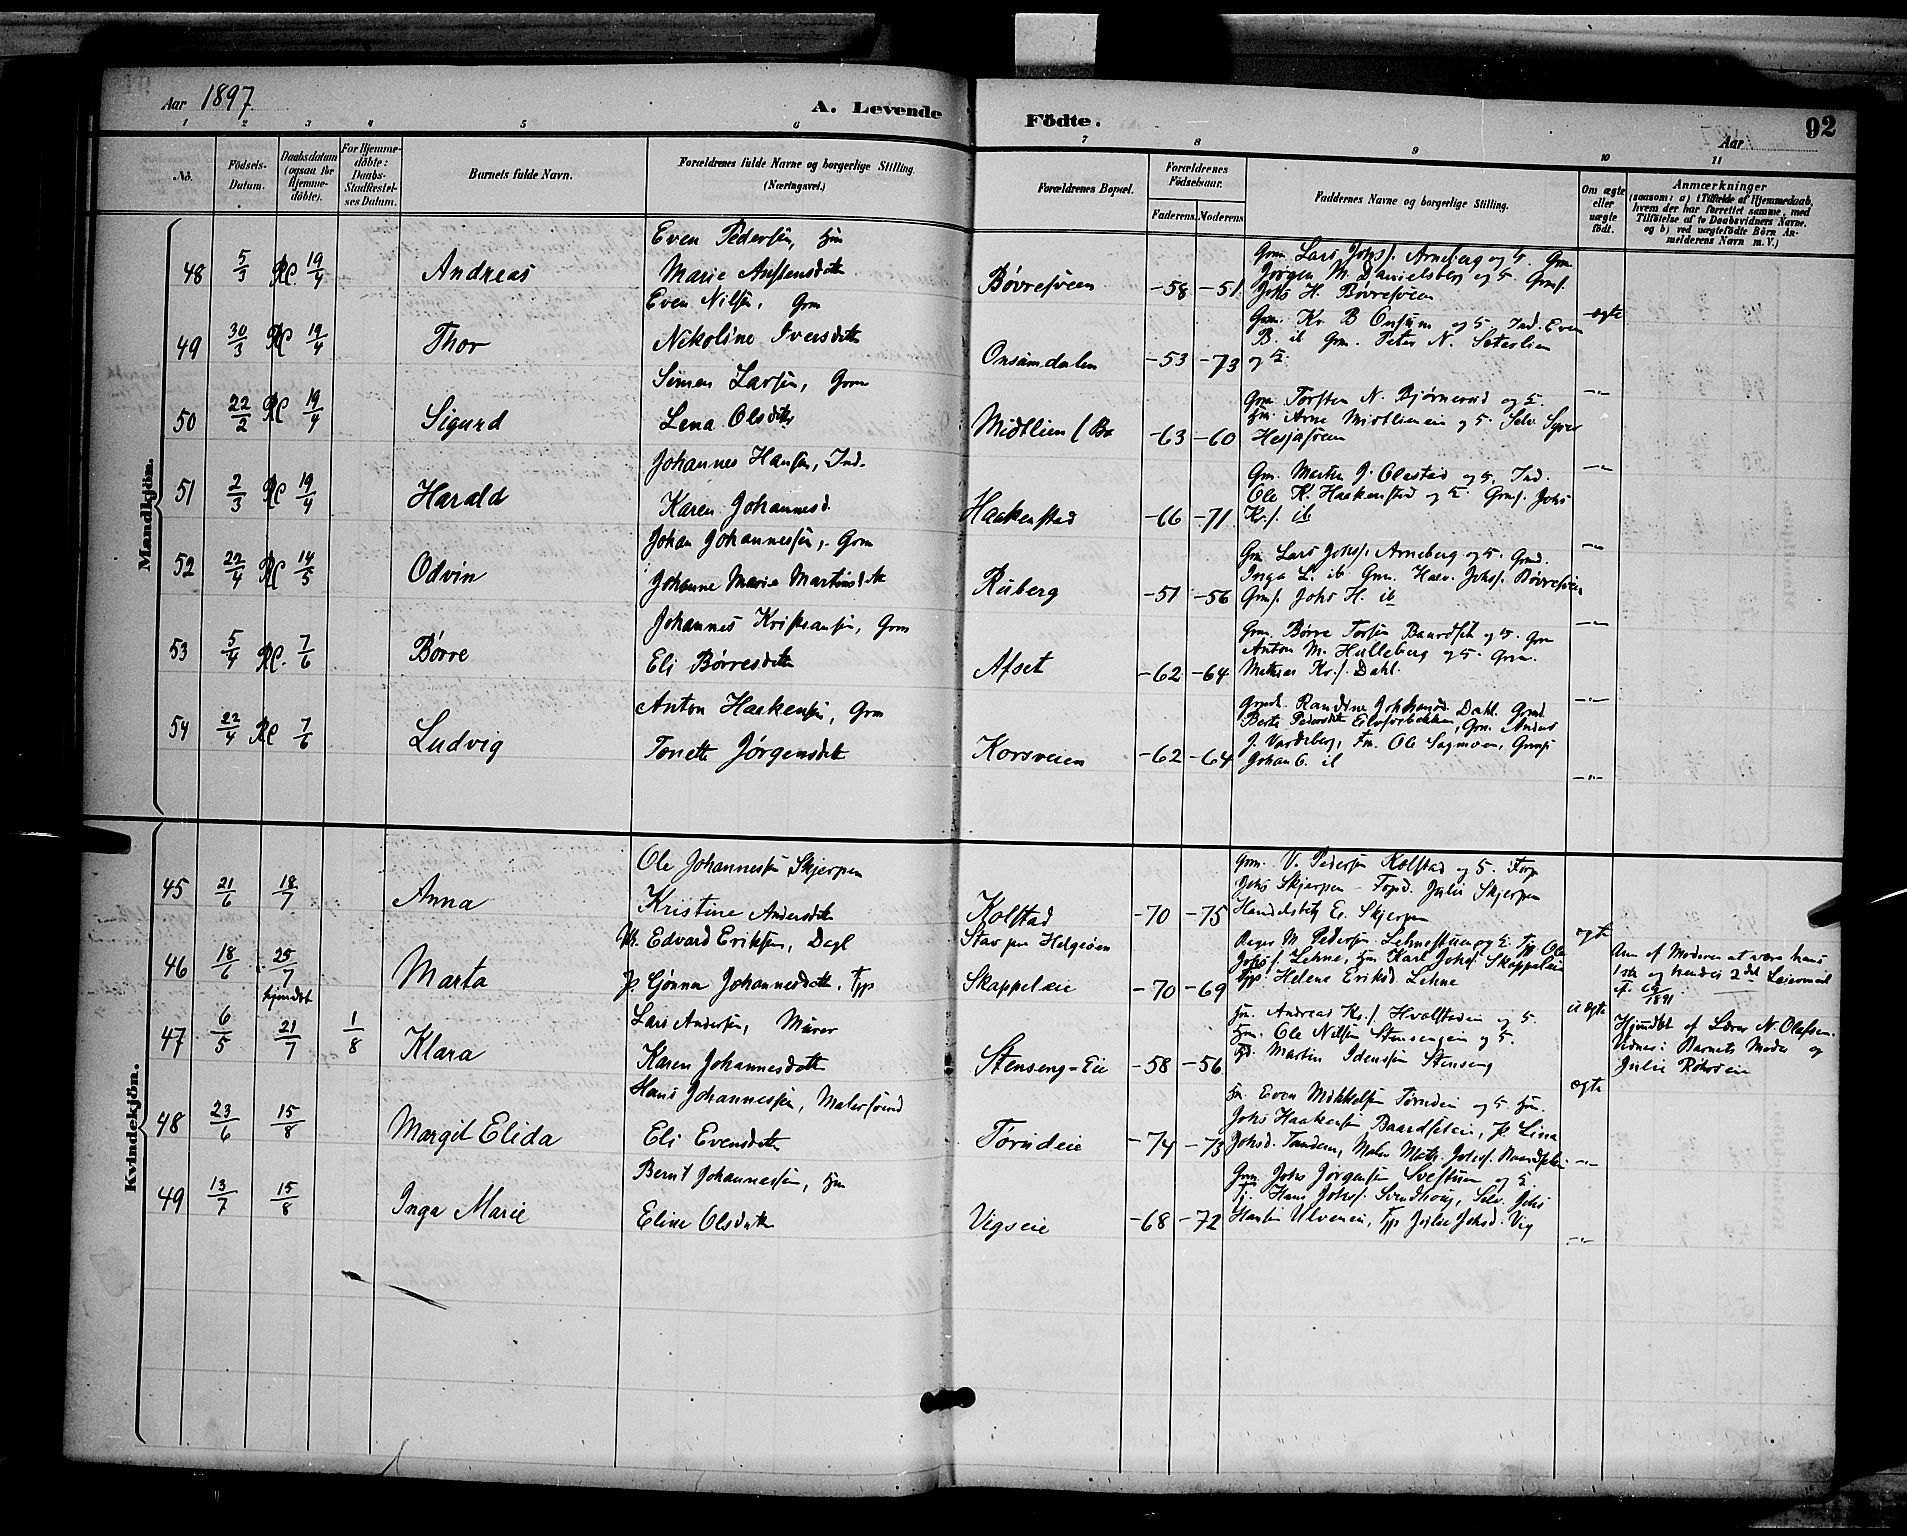 Aar 1897
A. Levende Födte.
Aar
92
1 2 3 4 5 6 7 8 9 10 11
No.
Födsels-Datum.
Daabsdatum (ogsaa for Hjemmedöbte).
For Hjemmedöbte: Daabs-Stadfæstelses Datum.
Barnets fulde Navn.
Forældrenes fulde Navne og borgerlige Stilling. (Næringsvei.)
Forældrenes Bopæl.
Forældrenes Födselsaar.
Faderens. Moderens.
Faddernes Navne og borgerlige Stilling.
Om ægte eller uægte födt.
Anmærkninger
(saasom: a) i Tilfælde af Hjemmedaab, hvem der har forrettet samme, med Tilföielse af to Daabsvidners Navne, og b) ved uægtefödte Börn Anmelderens Navn m. V.)
Mandkjön.
48 5/3 19/4 Andreas
Even Pedersen, Hm
Marie Austensdatt
Børresveen -58 -51
Grm Lars Johs/. Arneberg og h. Grm
Jørgen M. Danielsberg og h. Grms/.
Johs H. Børresveen
ægte
49 30/3 19/4 Thor
Even Nilsen, Grm
Nikoline Iversdatt
Onsumdalen -53 -73
Grm. Kr. B Onsum og h. Ind. Even
B. ib Grm. Peter N. Seterlien
og h.
-"-
50 22/2 19/4 Sigurd
Simen Larsen, Grm
Lena Olsdatt
Midtlien -63 -60
Grm. Torsten N. Bjørnerud og h.
Hm. Arne Midtlieneie og h. Selv. Syver
Hesjasveen
-"-
51 2/3 19/4 Harald
Johannes Hansen, Ind.
Karen Johannesd.
Haakenstad -66 -71
Gm. Marten J. Olestad og h. Ind.
Ole K. Haakenstad og h. Grms/. Johs
Kr./. ib
-"-
52 22/4 14/5 Odvin
Johan Johannessen, Grm
Johanne Marie Martinsdatt
Ruberg -51 -56
Grm Lars Johs/. Arneberg og h. Grmd.
Inga L. ib Grm. Halv. Johs/. Børresveen
Grms/. Johs H. ib
-"-
53 5/4 7/6 Børre
Johannes Kristiansen, Grm
Eli Børresdatt
Afset -62 -64
Grm. Børre Torsen Baardset og h. Grm
Anton M. Hulleberg og h. Grm.
Mathias Kr./. Dahl.
-"-
54 22/4 7/6 Ludvig
Anton Haakensen, Grm
Tonette Jørgensdatt
Korsveien -62 -64
Grmd. Randine Johannesd. Dahl. Grmd.
Berte Pedersdatt, Grm. Anders
J. Vardeberg, Fm. Ole Sagmoen, Grms/
Johan G. ib
-"-
Kvindekjön.
45 21/6 18/7 Anna
Ole Johannessen Skjerpen
Kristine Andersdatt
Kolstad -70 -75
Grm. V. Pedersen Kolstad og h. Forp
Johs Skjerpen - Fopd. Julie Skjerpen
Handelsbetj E. Skjerpen
ægte
46 18/6 25/7 Marta
Edvard Eriksen, Dagl
P. Gjønner Johannesdatt, Tjp
Stav paa Helgøen
Skappeleie -70 -69
M. Pedersen Lehnestuen og h. Tjg Ole
Johs/. Lehne, Hm Karl Johs/ Skappeleie
Tjp. Helene Eriksd. Lehne
uægte
Anm af Moderen at være hans
1ste og hendes 2det Leiermaal
1891
47 6/5 hjemdøbt 21/7 1/8 Klara
Lars Andersen, Murer
Karen Johannesdatt
Stenseng-Eie -58 -56
Hm. Andreas Kr./. Hvalstadeie og h.
Hm. Ole Nilsen Stensengeie og h.
Martin Idensen Stenseng
ægte
Hjemdøbt af Lærer N. Olafsen.
Vidner: Barnets Moder og
Julie Røhneeie
48 23/6 15/8 Margit Elida
Hans Johannessen, Malersvend
Eli Evensdatt
Tørudeie -74 -73
Hm. Even Mikkelsen Tørudeie og h. Hm.
Johs Haakensen Baardseteie, P. Lina
Johsd. Tanderen, Maler Math. Johs/. Baardseteie
-"-
49 13/7 15/8 Inga Marie
Bernt Johannessen, Hm
Eline Olsdatt
Vigseie -68 -72
Grm. Johs Jørgensen Svestuen og h.
Tj. Hans Johs/. Svendhoug, Selv. Johs
Hansen Ulveneie, Tjp Julie Johsd. Vig
-"-